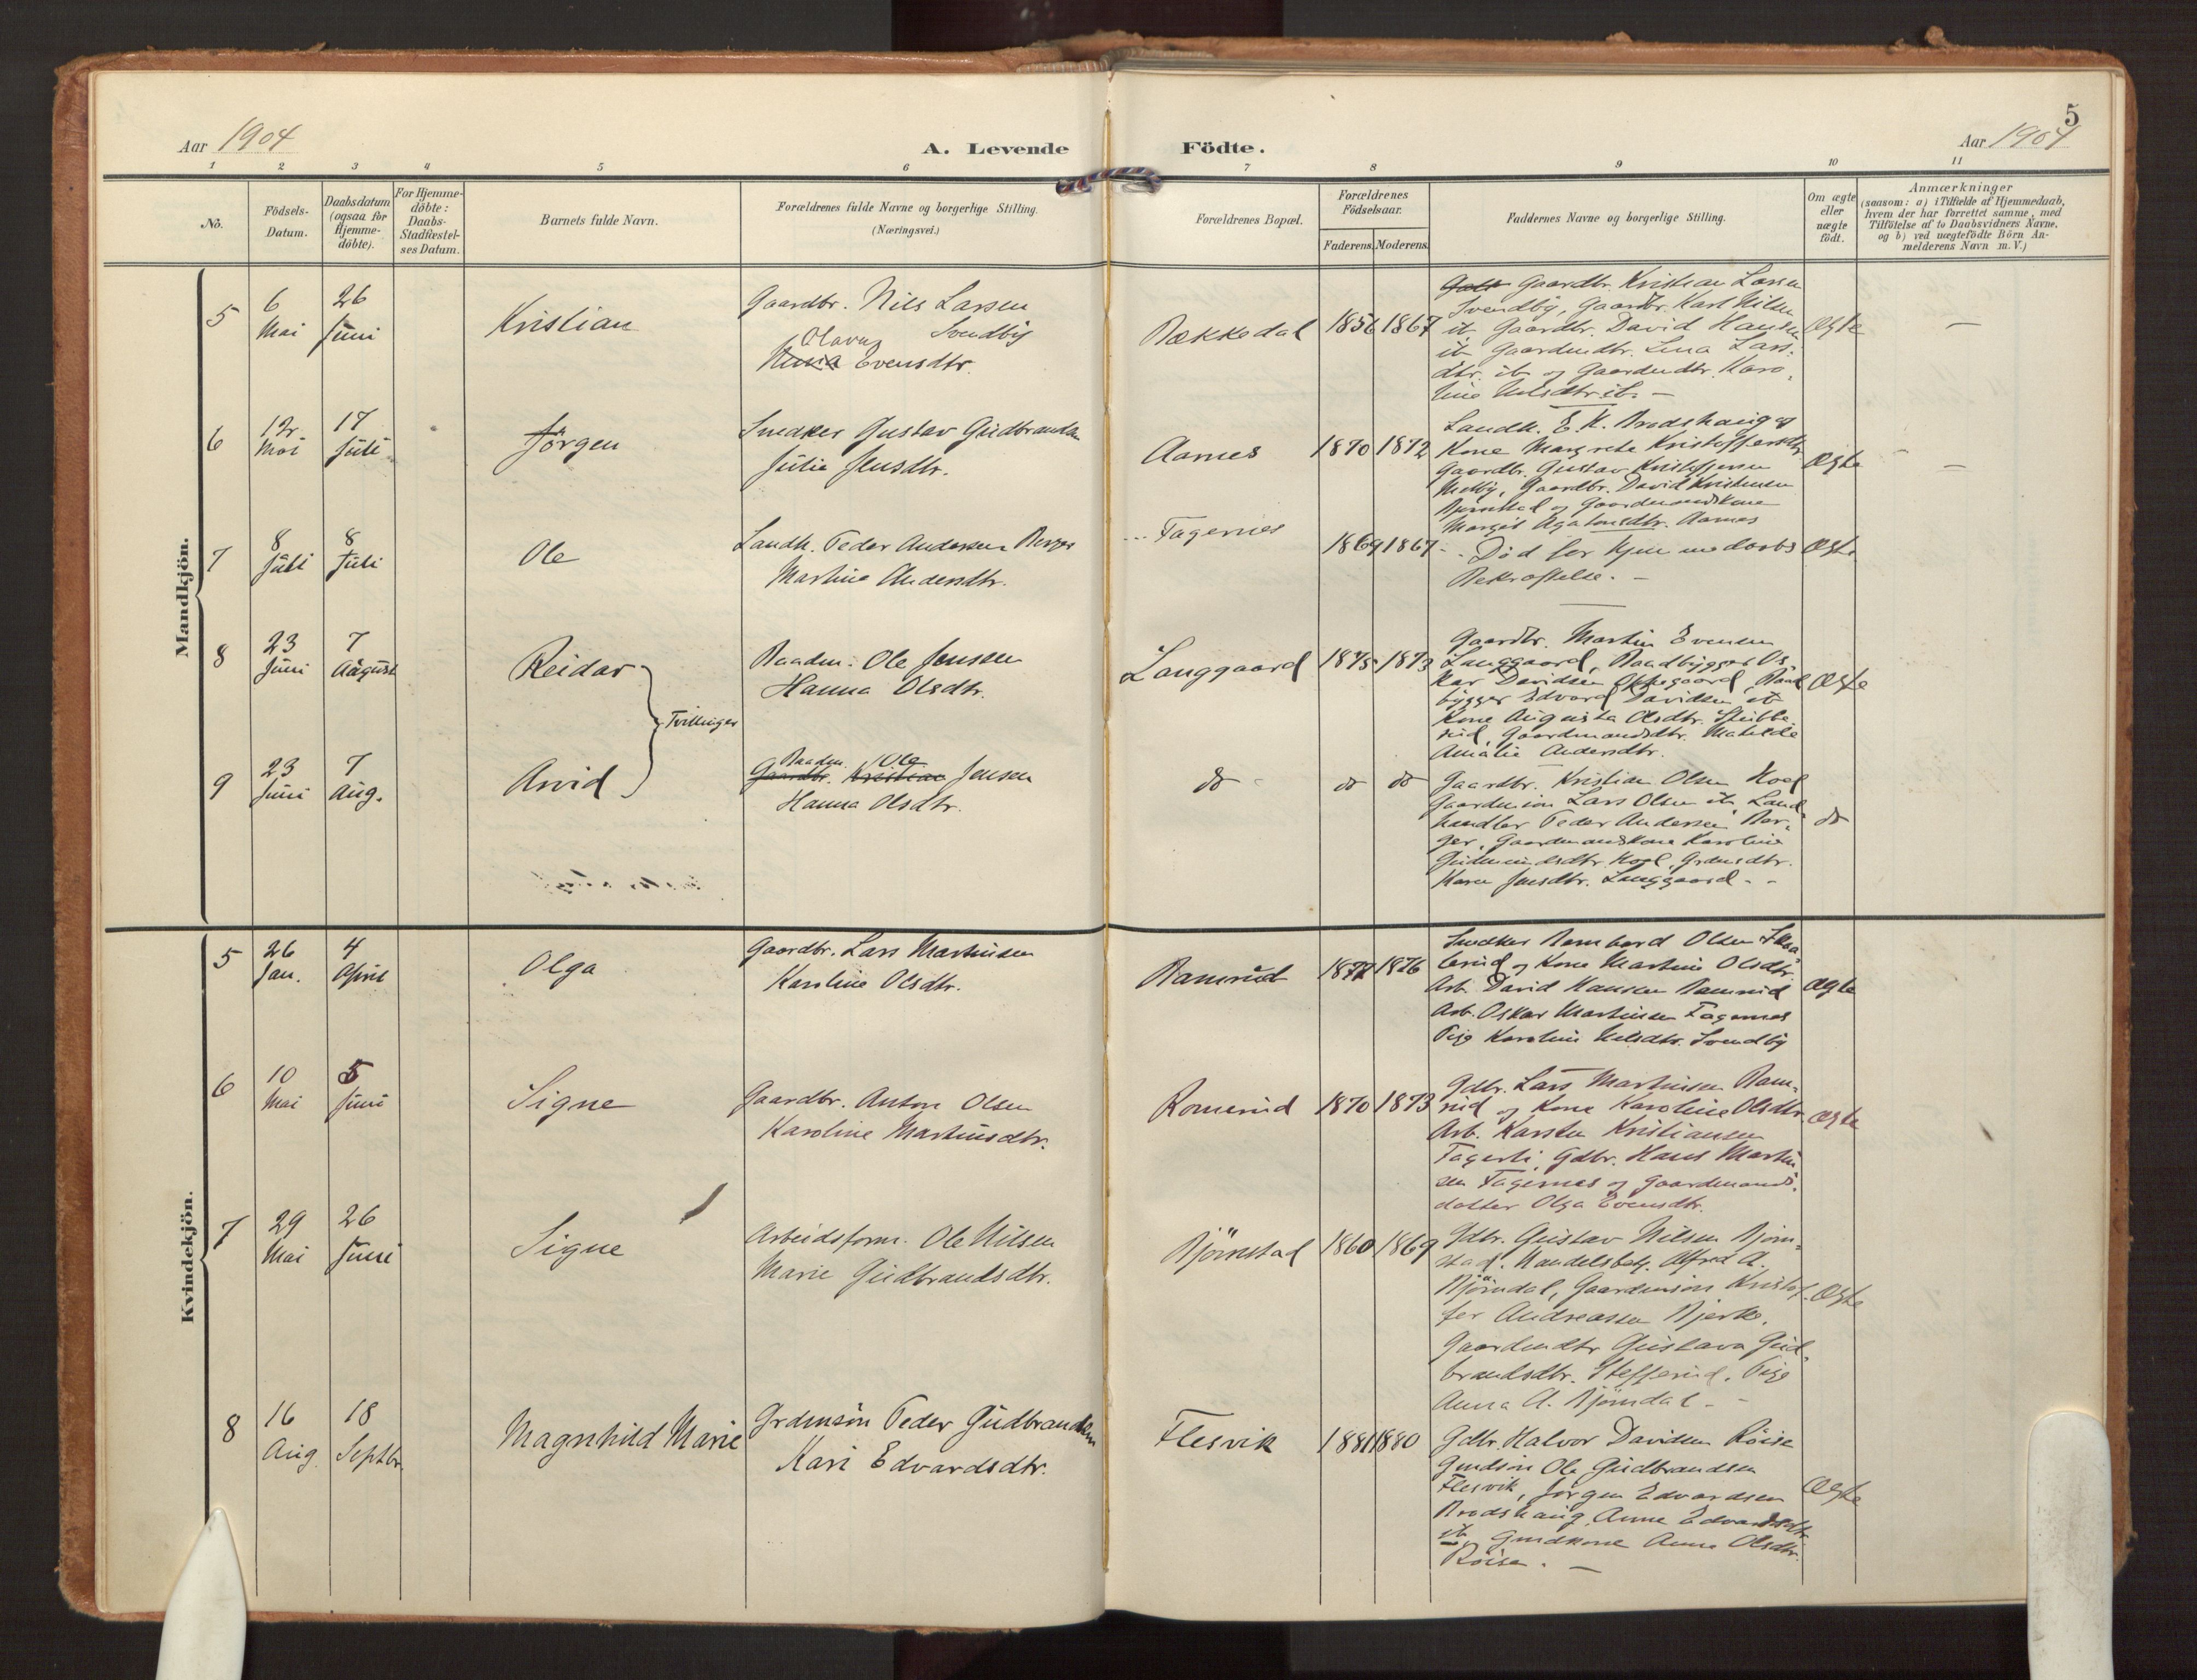 5
Aar 1904
A. Levende Födte.
Aar 1904
1 2 3 4 5 6 7 8 9 10 11
No.
Födsels-
Datum.
Daabsdatum
(ogsaa for
Hjemme-
döbte).
For Hjemme-
döbte:
Daabs-
Stadfæstel-
ses Datum.
Barnets fulde Navn.
Forældrenes fulde Navne og borgerlige Stilling.
(Næringsvei.)
Forældrenes Bopæl.
Forældrenes
Födselsaar.
Faderens. Moderens.
Faddernes Navne og borgerlige Stilling.
Om ægte
eller
uægte
födt.
Anmærkninger
(saasom: a) i Tilfælde af Hjemmedaab,
hvem der har forrettet samme, med
Tilföielse af to Daabsvidners Navne,
og b) ved uægtefödte Börn An-
melderens Navn m. V.)
Mandkjön.
5
6
Mai
26
Juni
Kristian
Gaardbr. Nils Larsen
Svendby
Olava
Evensdtr.
Bækkedal
1856 1867
Gaardbr. Kristian Larsen
Svendby, Gaardbr. Karl Nilsen
ib Gaardbr. David Hansen
ib Gaardmdtr. Lina Lars-
dtr. ib og Gaardmdtr. Karo-
line Nilsdtr ib. –
Ægte
–
6
12
Mai
17
Juli
Jörgen
Snedker Gustav Gudbrandsen
Julie Jensdtr.
Aarnes
1870 1872
Landh. E. K. Brodshaug og
Kone Margrete Kristoffersdtr
Gaardbr. Gustav Kristoffersen
Melby, Gaardbr. David Kristensen
Bjørnstad og Gaardmandskone
Margit Agatonsdtr. Aarnes
Ægte
–
7
8
Juli
8
Juli
Ole
Landh. Peder Andersen Berger
Martine Andersdtr.
Fagernes
1869 1867
Död før Hjemmedaabs
Bekræftelse. –
Ægte
8
23
Juni
7
August
Reidar
Tvillinger
Baadm. Ole Jensen
Hanna Olsdtr.
Langgaard
1875 1873
Gaardbr. Martin Evensen
Langgaard, Baadbygger Os-
kar Davidsen Oppegaard, Baad
bygger Edvard Davidsen ib
Kone Augusta Olsdtr. Stubbe-
rud, Gaardmandsdtr. Matilde
Amalie Andersdtr.
Ægte
9
23
Juni
7
Aug.
Arvid
Baadm. Ole
Gaardbr. Kristian Jensen
Hanna Olsdtr.
do
do do
Gaardbr. Kristian Olsen Hoel
Gaardmsön Lars Olsen ib, Land-
handler Peder Andersen Ber-
ger, Gaardmandskone Karoline
Gudmundsdtr. Hoel, Grdmsdtr.
Karen Jensdtr. Langgaard - -
do
Kvindekjön.
5
26
Jan.
4
April
Olga
Gaardbr. Lars Martinsen
Karoline Olsdtr.
Ramsrud
1877 1876
Snedker Bernhard Olsen
og Kone Martine Olsdtr.
Arb. David Hansen Ramsrud
Arb. Oskar Martinsen Fagernes
Pige Karoline Nilsdtr. Svendby
Ægte
6
10
Mai
5
Juni
Signe
Gaardbr. Anton Olsen
Karoline Martinsdtr.
Romsrud
1870 1873
Gdbr. Lars Martinsen Ram-
rud og Kone Karoline Olsdtr.
Arb. Karsten Kristiansen
Fagerli, Gdbr. Hans Martin
sen Fagernes og Gaardmands-
datter Olga Evensdtr.
Ægte
7
29
Mai
26
Juni
Signe
Arbeidsform. Ole Nilsen
Marie Gudbrandsdtr.
Bjørnstad
1860 1869
Gdbr. Gustav Nilsen Bjørn-
stad. Handelsbetj. Alfred A.
Bjørndal, Gaardmsön Kristof-
fer Andreassen Bjerke,
Gaardmdtr Gustava Gud-
brandsdtr. Stefferud. Pige
Anna A. Bjørndal –
Ægte
8
16
Aug.
18
Septbr.
Magnhild Marie
Grdmsön Peder Gudbrandsen
Kari Edvardsdtr.
Flesvik
1881 1880
Gdbr. Halvor Davidsen Röise
Gmdsön Ole Gudbrandsen
Flesvik, Jörgen Edvardsen
Brodshaug, Anne Edvardsdtr
ib, Gmdkone Anne Olsdtr.
Röise. –
Ægte